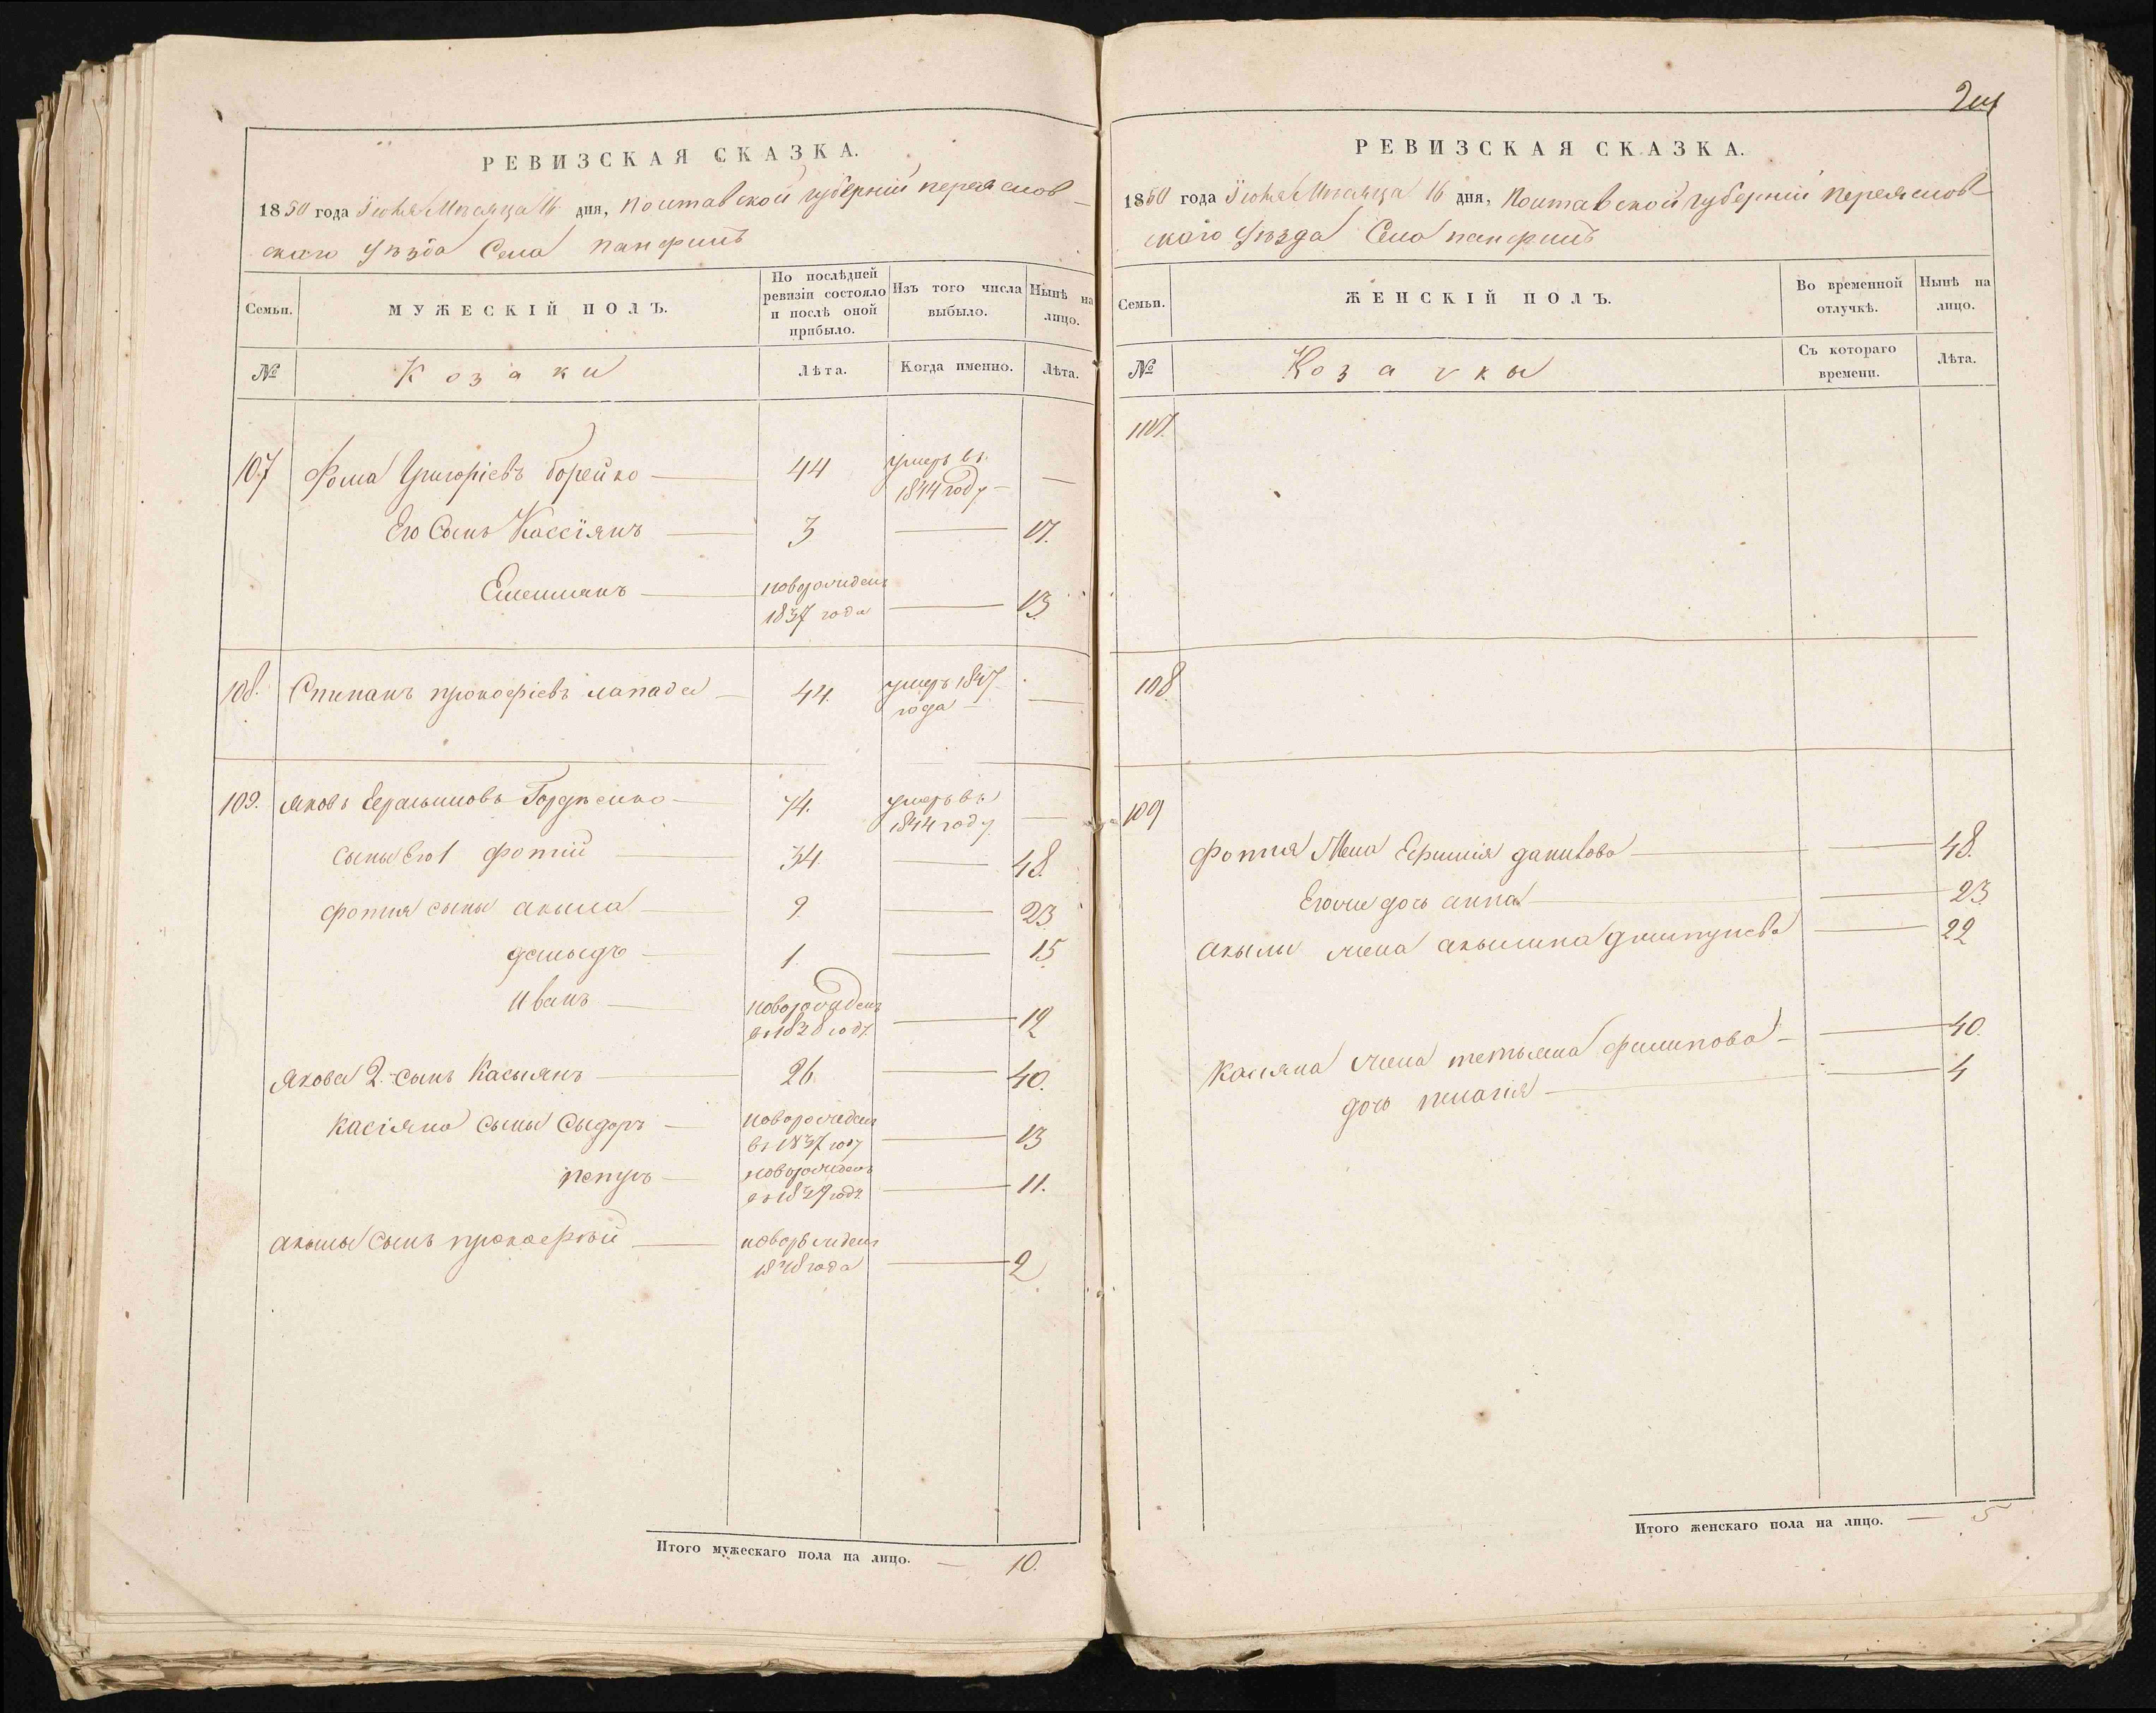 РЕВИЗСКАЯ СКАЗКА.
1850 года Іюня Мѣсяца 16 дня, Полтавской губерніи переяслов-
скаго уѣзда Села панфилъ
Семьи.
МУЖЕСКІЙ ПОЛЪ.
По послѣдней ревизіи состояло и послѣ оной прибыло.
Изъ того числа выбыло.
Нынѣ на лицо.
№
Козаки
Лѣта.
Когда именно.
Лѣта.
107 Фома Григоріевъ Борейко — 44 умеръ въ 1844 году — —
Его Сынъ Кассіянъ — 3 — 17.
новорожденъ 1837 года — 13
108. Стипанъ прокофіевъ лапада — 44. умеръ 1847 года — —
109. яковъ Герасимовъ Гордѣенко — 74. умеръ въ 1844 году —
сыны Его 1 фотій — 34 — 48.
фотія сыны акыла — 9. — 23
демыдъ — 1. — 15.
иванъ — новорожденъ въ 1838 году. — 12
Якова 2. сынъ Касыянъ — 26. — 40.
касіяна сыны Сыдоръ — новорожденъ въ 1837 году — 13
петръ — новорожденъ въ 1839 году. — 11.
акылы сынъ прокофѣй — новорожденъ 1848 года — 2
Итого мужескаго пола на лицо. — 10.
РЕВИЗСКАЯ СКАЗКА.
1850 года Іюня Мѣсяца 16 дня, Полтавской губерніи переяслов-
скаго уѣзда Села панфилъ
Семьи.
ЖЕНСКІЙ ПОЛЪ.
Во временной отлучкѣ.
Нынѣ на лицо.
№
Козачкы
Съ котораго времени.
Лѣта.
107.
108.
109
фотия Жена Ефимія данилова — — 48.
Егоже дочь анна — — 23
акылы жена акылина — 22
Касияна жена тетьяна филипова — — 40.
дочь пелагія — — 4
Итого женскаго пола на лицо. — 5